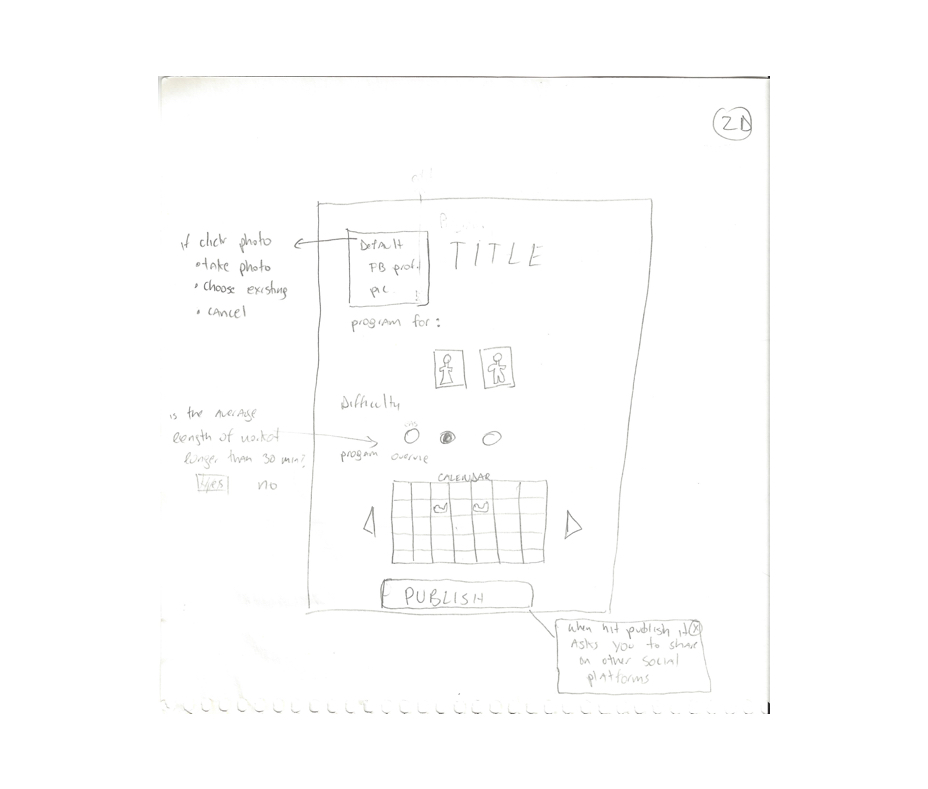 2D
if click photo
• take photo
• choose existing
• cancel
Default
FB prof.
pic
TITLE
program for:
Difficulty
is the average
length of
longer than 30 min?
yes no
program
CALENDAR
PUBLISH
when hit publish it
Asks you to share
on other social
platforms
X